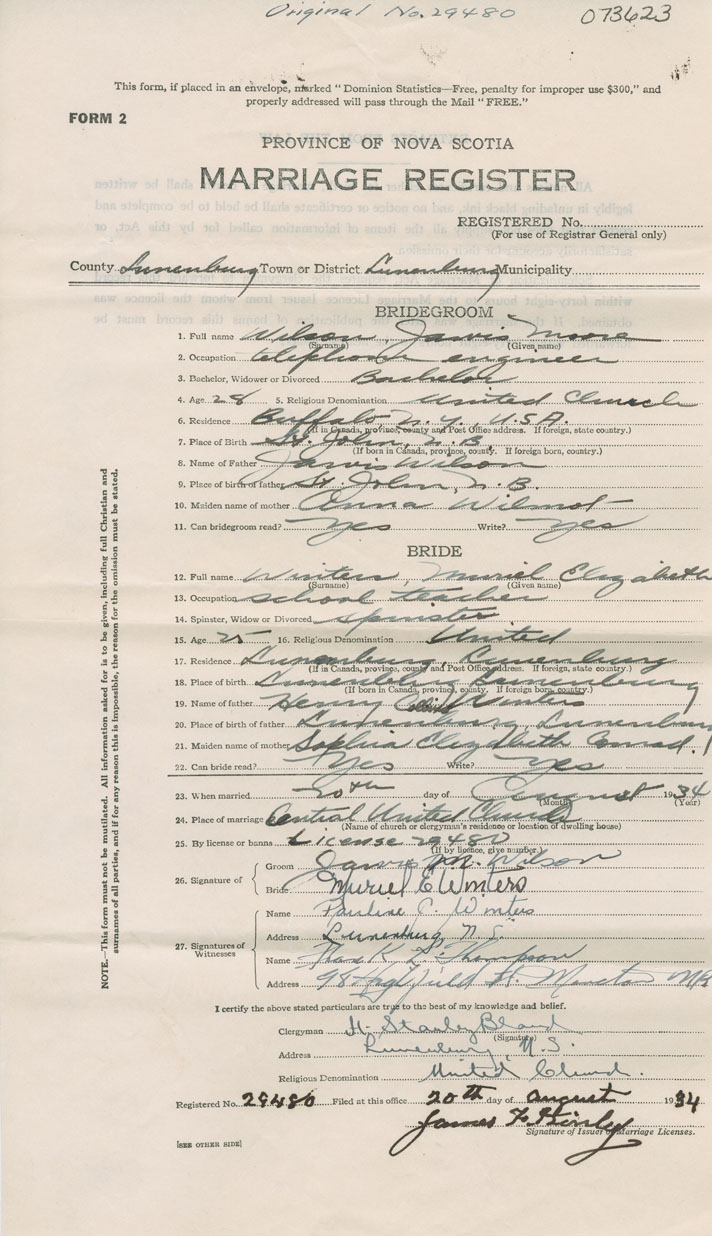 Original No. 29480 073623
This form, if placed in an envelope, marked "Dominion Statistics—Free, penalty for improper use $300," and
properly addressed will pass through the Mail "FREE."
FORM 2
PROVINCE OF NOVA SCOTIA
MARRIAGE REGISTER
REGISTERED No.
(For use of Registrar General only)
County Lunenburg Town or District Lunenburg Municipality
BRIDEGROOM
1. Full name Wilson, Jarvis Moore
(Surname) (Given name)
2. Occupation telephone engineer
3. Bachelor, Widower or Divorced Bachelor
4. Age 28 5. Religious Denomination United Church
6. Residence Buffalo N.Y. U.S.A.
(If in Canada, province, county and Post Office address. If foreign, state country.)
7. Place of Birth St. John, N.B.
(If born in Canada, province, county. If foreign born, country.)
8. Name of Father Jarvis Wilson
9. Place of birth of father St. John, N.B.
10. Maiden name of mother Anna Wilmot
11. Can bridegroom read? Yes Write? Yes
BRIDE
12. Full name Winters, Muriel Elizabeth
(Surname) (Given name)
13. Occupation school teacher
14. Spinster, Widow or Divorced spinster
15. Age 25 16. Religious Denomination United
17. Residence Lunenburg, Lunenburg
(If in Canada, province, county and Post Office address. If foreign, state country.)
18. Place of birth Lunenburg Lunenburg
(If born in Canada, province, county. If foreign born, country.)
19. Name of father Henry Winters
20. Place of birth of father Lunenburg, Lunenburg
21. Maiden name of mother Sophia Elizabeth Conrad
22. Can bride read? Yes Write? Yes
23. When married 20th day of August 1934
(Month) (Year)
24. Place of marriage Central United Church
(Name of church or clergyman's residence or location of dwelling house)
25. By license or banns License 29480
(If by licence, give number.)
26. Signature of Groom Jarvis M. Wilson
Bride Muriel E Winters
27. Signatures of Witnesses Name Pauline C. Winters
Address Lunenburg, N.S.
Name Thompson
Address 98 St. Moncton NB
I certify the above stated particulars are true to the best of my knowledge and belief.
Clergyman H. Stanley Bland
(Signature)
Address Lunenburg N.S.
Religious Denomination United Church.
Registered No. 29480 Filed at this office 20th day of August 1934
James
Signature of Issuer of Marriage Licenses.
[SEE OTHER SIDE]
NOTE.—This form must not be mutilated. All information asked for is to be given, including full Christian and
surnames of all parties, and if for any reason this is impossible, the reason for the omission must be stated.